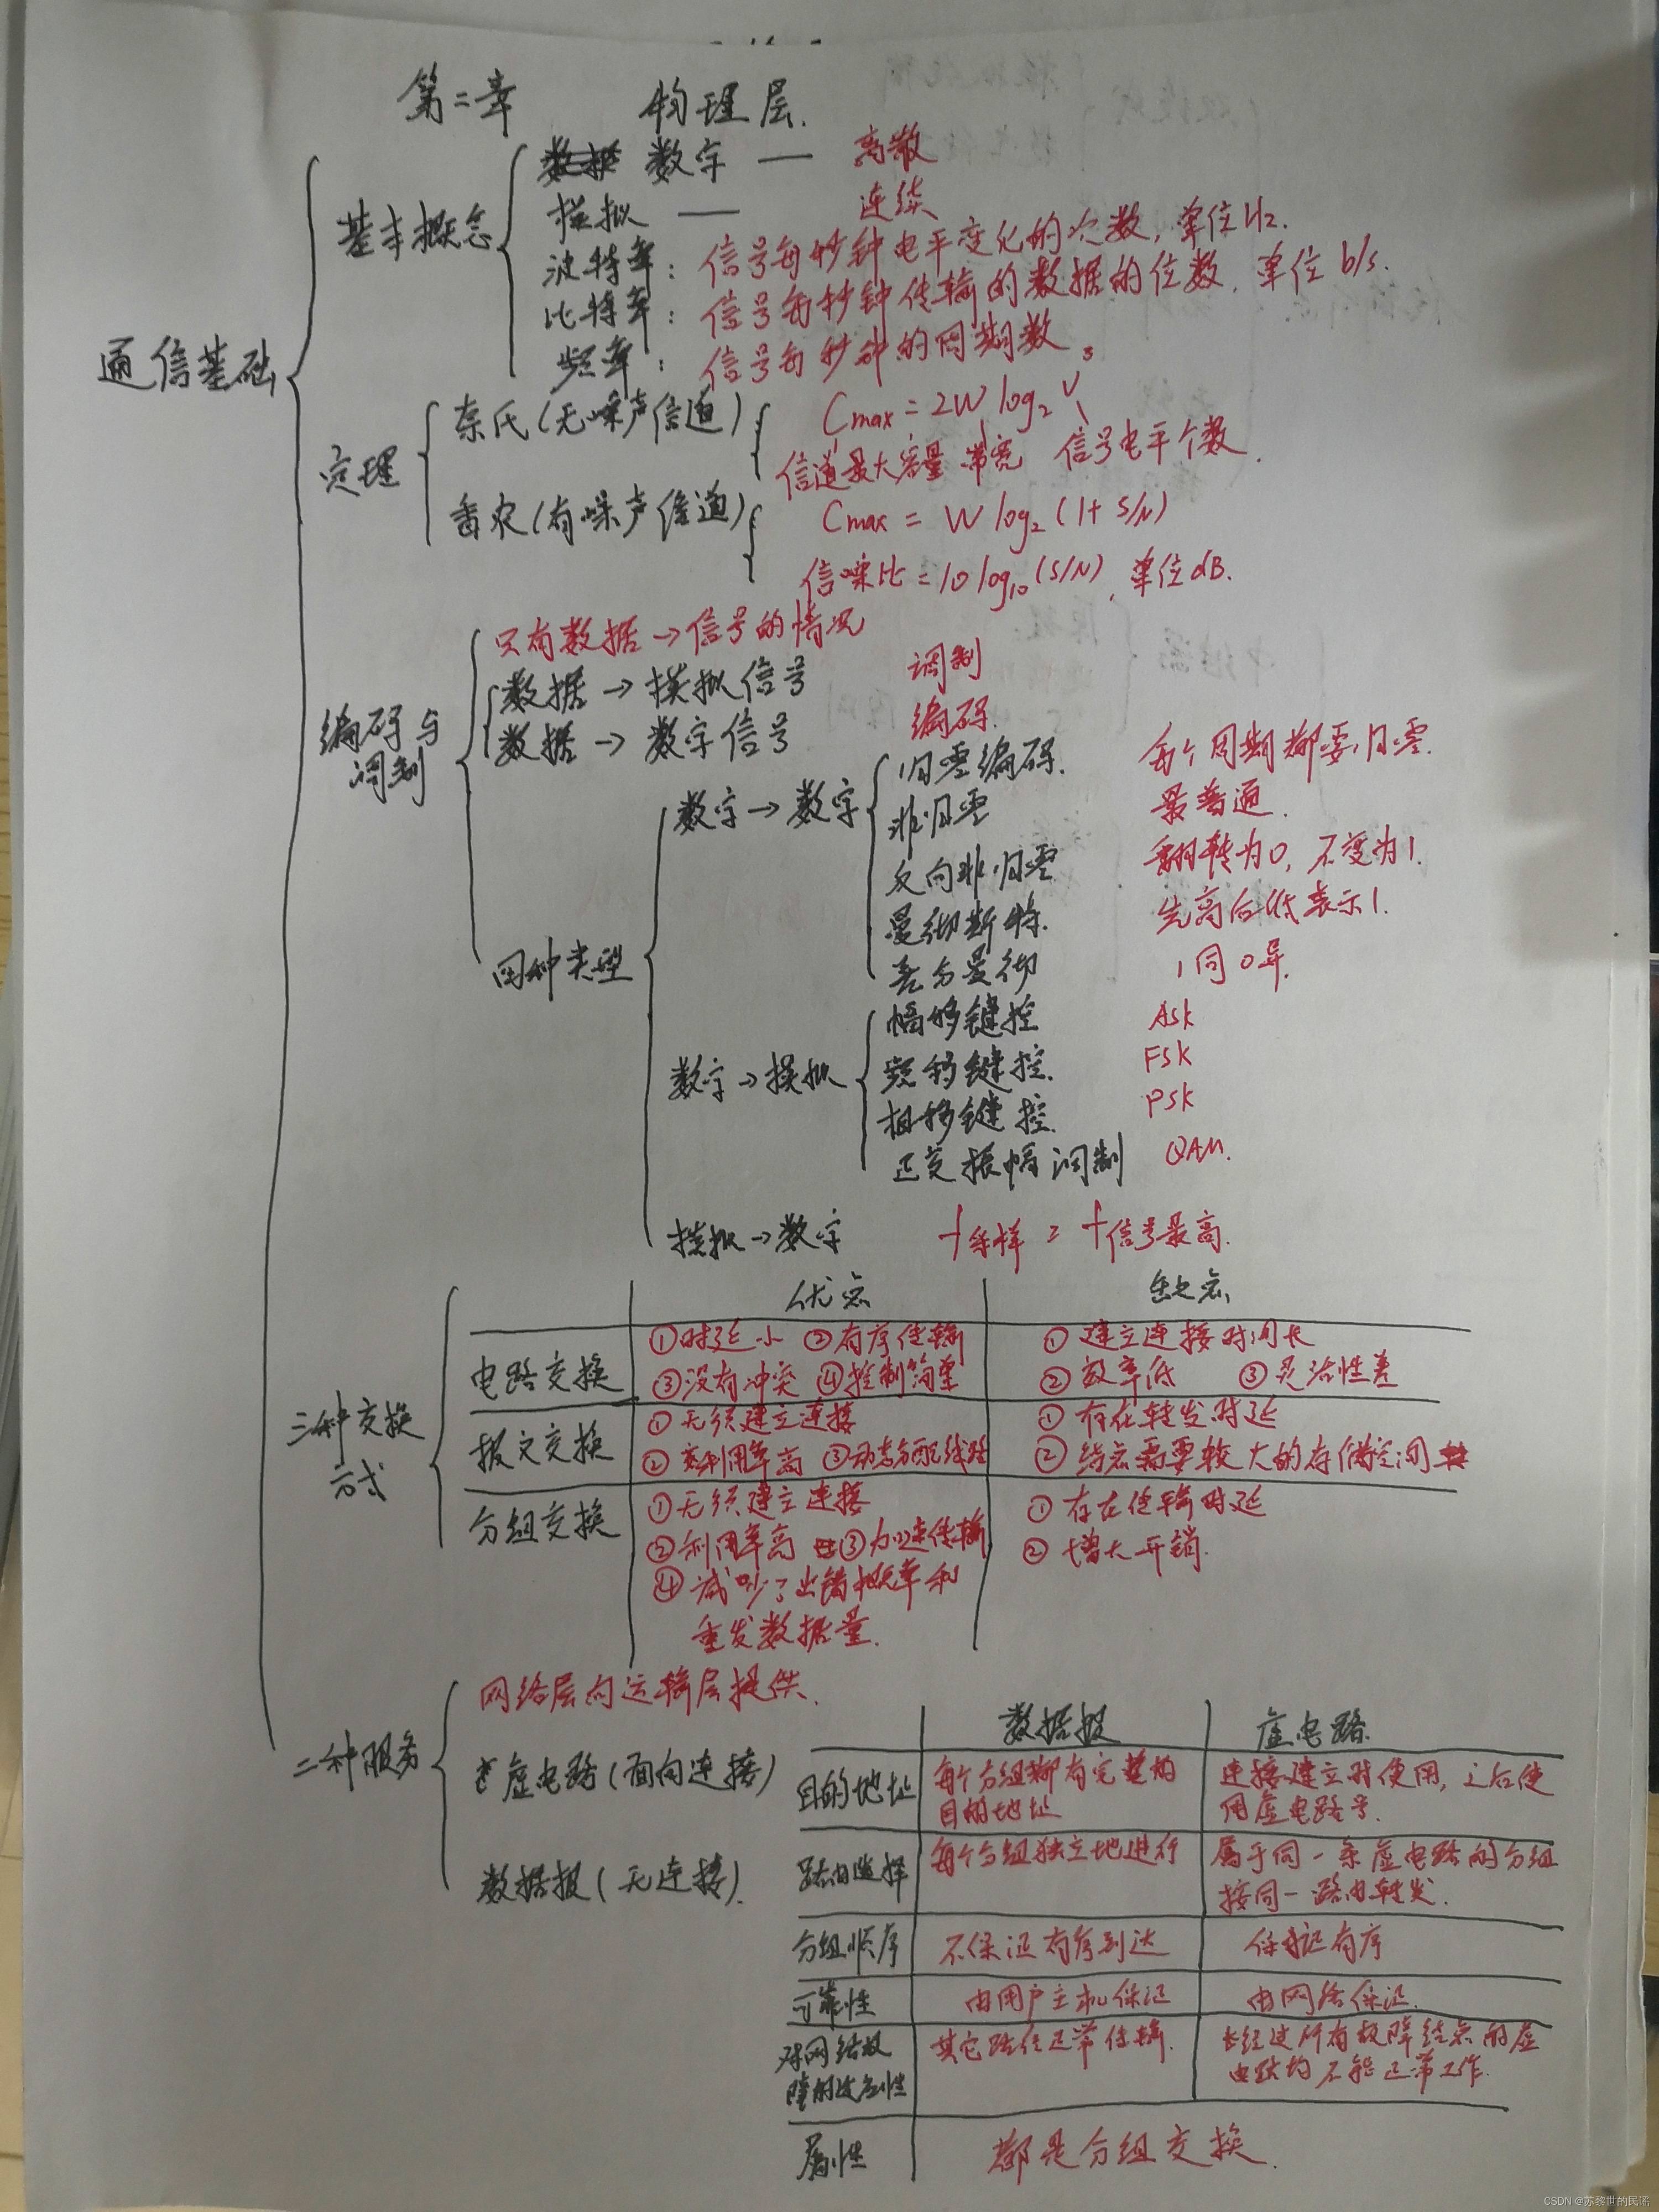 第二章 物理层.
通信基础
基本概念
数字 — 离散
模拟 — 连续
波特率：信号每秒钟电平变化的次数，单位Hz.
比特率：信号每秒钟传输的数据的位数，单位 b/s.
频率：信号每秒钟的周期数。
定理
奈氏(无噪声信道)
Cmax = 2W log₂ V
信道最大容量 带宽 信号电平个数.
香农(有噪声信道)
Cmax = W log₂ (1+ S/N)
信噪比 = 10 log₁₀ (S/N), 单位dB.
编码与调制
只有数据→信号的情况
数据→模拟信号 调制
数据→数字信号 编码.
四种类型
数字→数字
归零编码. 每个周期都要归零.
非归零 最普通.
反向非归零 翻转为0, 不变为1.
曼彻斯特. 先高后低表示1.
差分曼彻 1同0异.
数字→模拟
幅移键控 ASK
频移键控. FSK
相移键控. PSK
正交振幅调制 QAM.
模拟→数字 f采样 = f信号最高.
三种交换方式
优点 缺点
电路交换
①时延小 ②有序传输
③没有冲突 ④控制简单
①建立连接时间长
②效率低 ③灵活性差
报文交换
①无须建立连接
②利用率高 ③动态分配线路
①存在转发时延
②结点需要较大的存储空间
分组交换
①无须建立连接
②利用率高 ③加速传输
④减少了出错概率和
重发数据量.
①存在传输时延
②增大开销.
二种服务
网络层向运输层提供.
虚电路(面向连接)
数据报(无连接).
数据报 虚电路.
目的地址
每个分组都有完整的
目的地址
连接建立时使用, 之后使
用虚电路号.
路由选择
每个分组独立地进行
属于同一条虚电路的分组
按同一路由转发.
分组顺序 不保证有序到达 保证有序
可靠性 由用户主机保证 由网络保证.
对网络故
障的适应性
其它路径正常传输.
经过所有故障结点的虚
电路均不能正常工作.
属性 都是分组交换.
CSDN @苏黎世的民谣